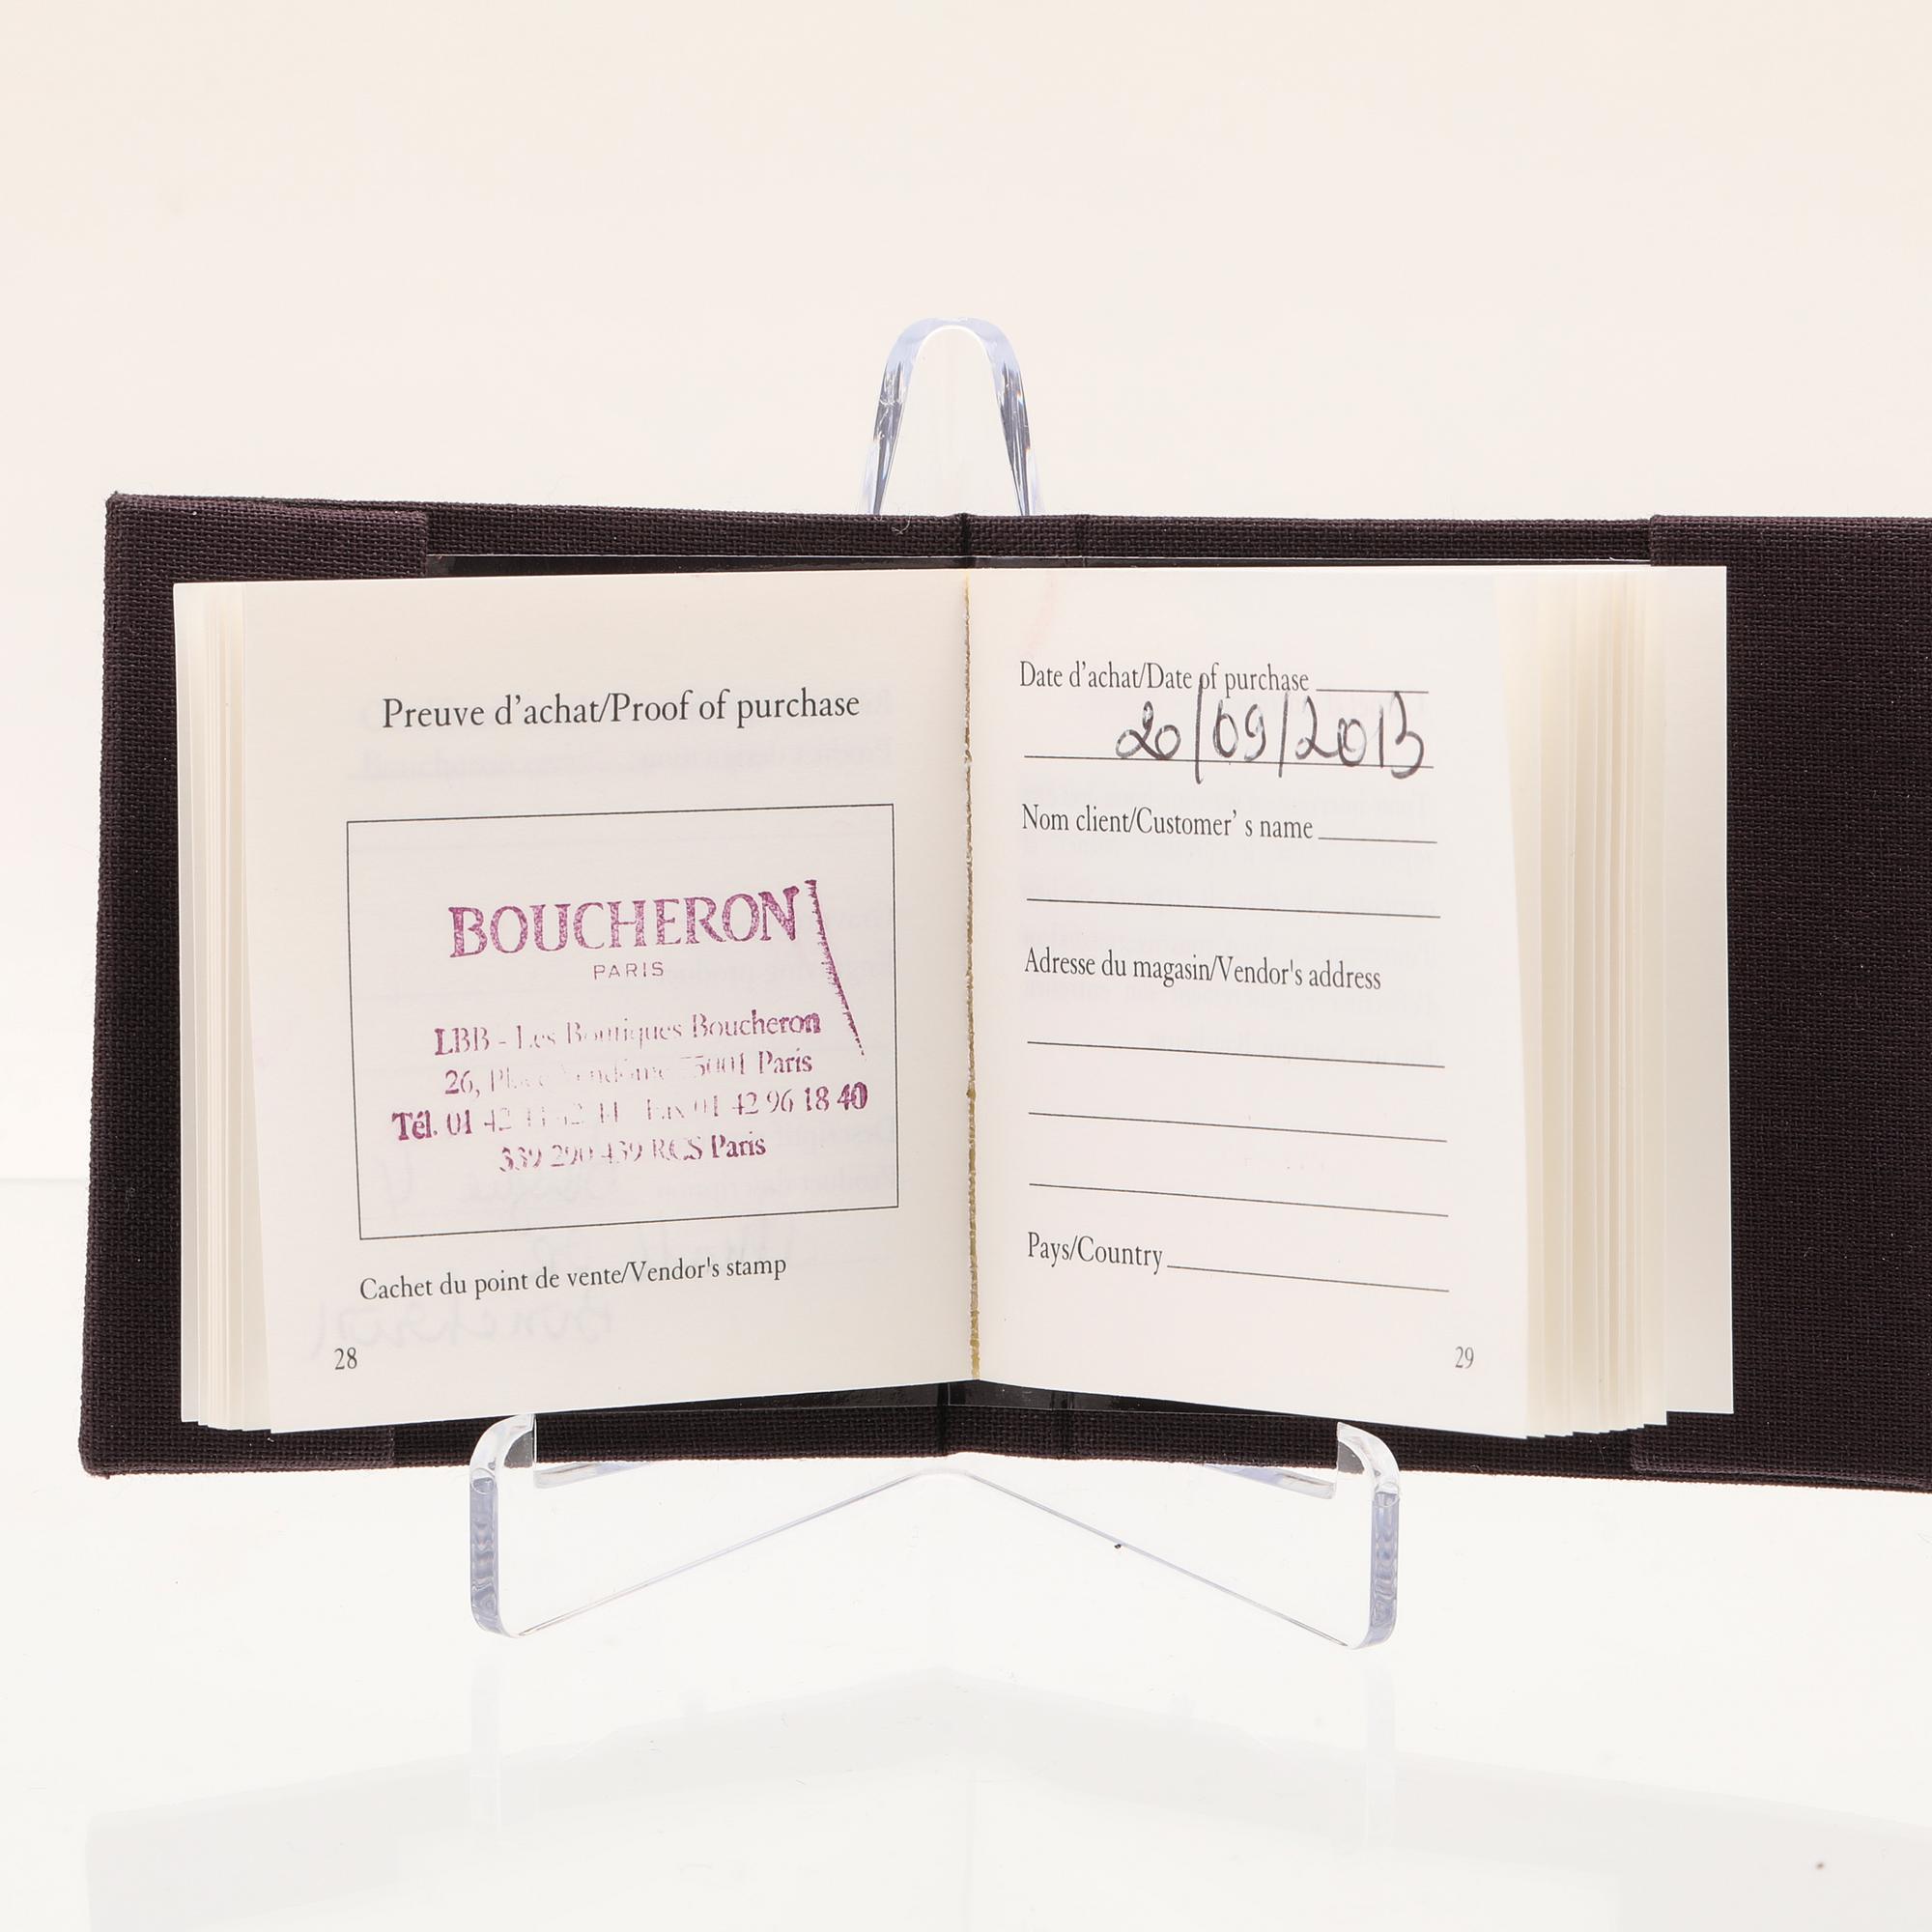 Preuve d'achat/Proof of purchase
BOUCHERON
PARIS
LBB - Les Boutiques Boucheron
26, Place Vendôme 75001 Paris
Tél. 01 42 44 42 44 Fax 01 42 96 18 40
339 290 439 RCS Paris
Cachet du point de vente/Vendor's stamp
28
Date d'achat/Date of purchase
20/09/2013
Nom client/Customer' s name
Adresse du magasin/Vendor's address
Pays/Country
29